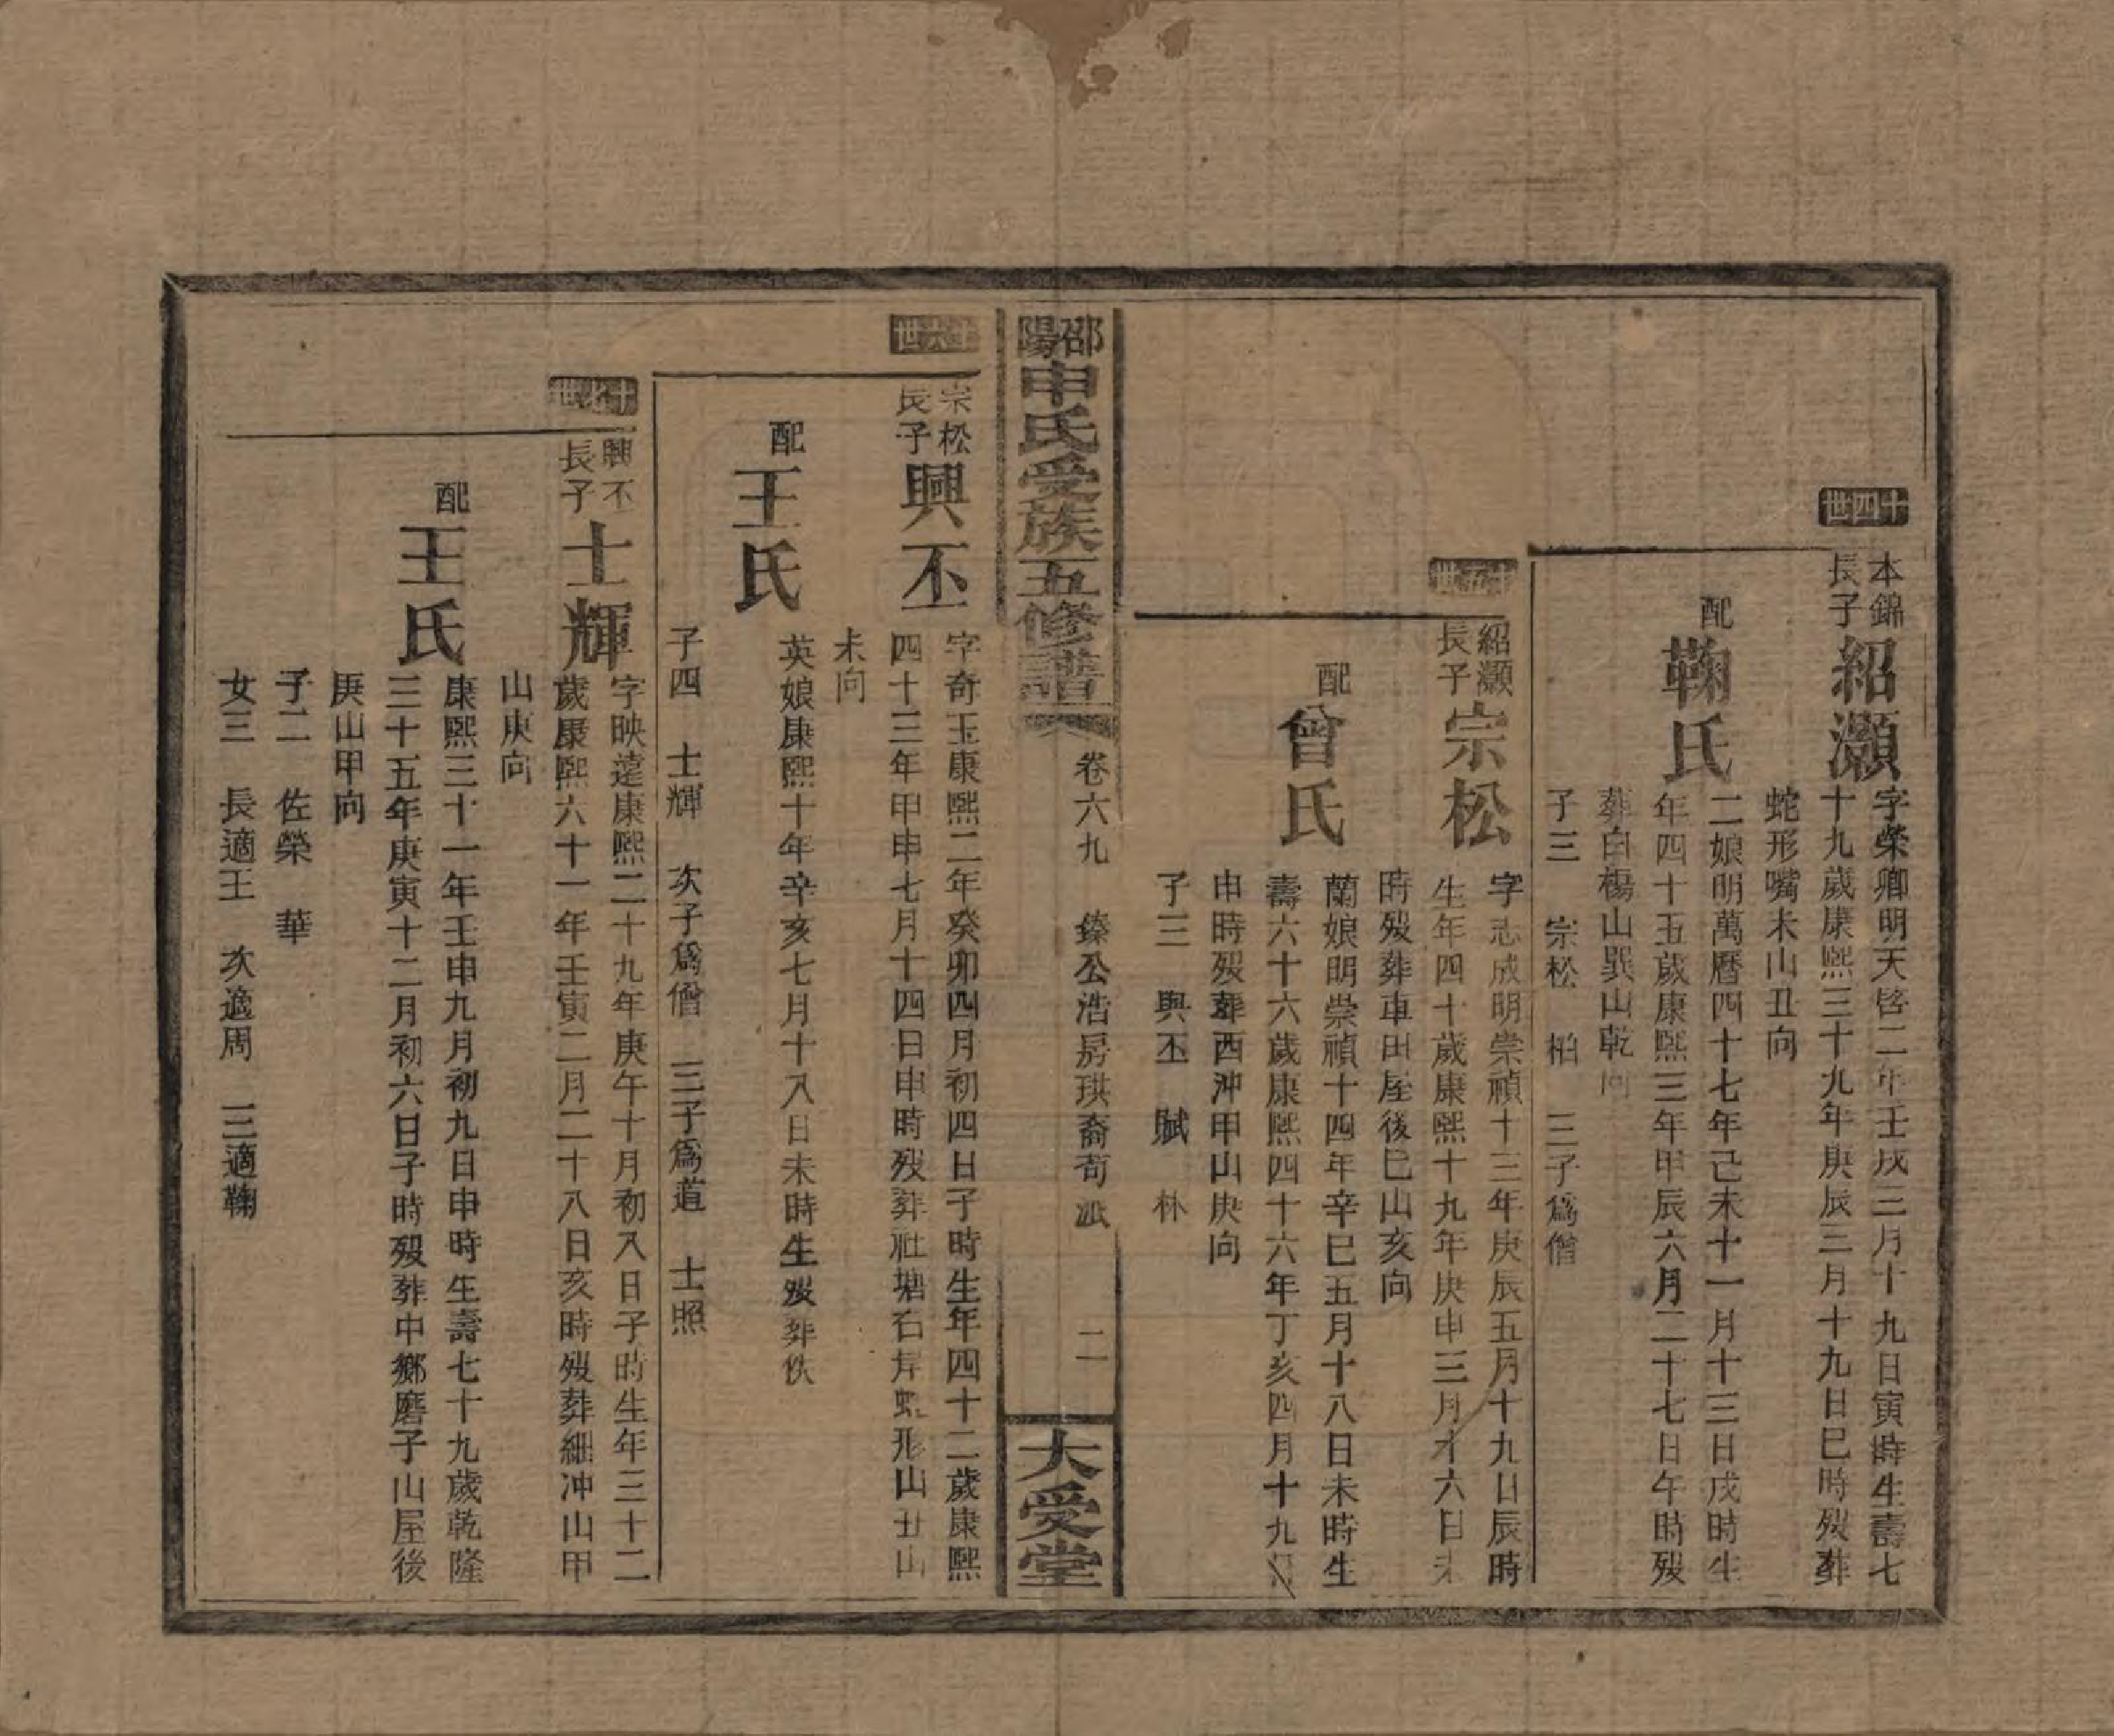 十四世
本錦長子
紹灝
字榮卿明天啓二年壬戌三月十九日寅時生壽七
十九歲康熙三十九年庚辰三月十九日巳時歿葬
蛇形嘴未山丑向
配
鞠氏
二娘明萬曆四十七年己未十一月十三日戌時生
年四十五歲康熙三年甲辰六月二十七日午時歿
葬白楊山巽山乾向
子三 宗松 柏 三子爲僧
十五世
紹灝長子
宗松
字志成明崇禎十三年庚辰五月十九日辰時
生年四十歲康熙十九年庚申三月十六日未
時歿葬車田屋後巳山亥向
配
曾氏
蘭娘明崇禎十四年辛巳五月十八日未時生
壽六十六歲康熙四十六年丁亥四月十九日
申時歿葬西沖甲山庚向
子三 興丕 賦 林
邵陽申氏受族五修譜
卷六九 鏻公浩房琪裔苟派
二
大受堂
十六世
宗松長子
興丕
字奇玉康熙二年癸卯四月初四日子時生年四十二歲康熙
四十三年甲申七月十四日申時歿葬社塘石岸虵形山丑山
未向
配
王氏
英娘康熙十年辛亥七月十八日未時生歿葬佚
子四 士輝 次子爲僧 三子爲道 士照
十七世
興丕長子
士輝
字映遠康熙二十九年庚午十月初八日子時生年三十二
歲康熙六十一年壬寅二月二十八日亥時歿葬細冲山甲
山庚向
配
王氏
康熙三十一年壬申九月初九日申時生壽七十九歲乾隆
三十五年庚寅十二月初六日子時歿葬中鄉磨子山屋後
庚山甲向
子二 佐榮 華
女三 長適王 次適周 三適鞠